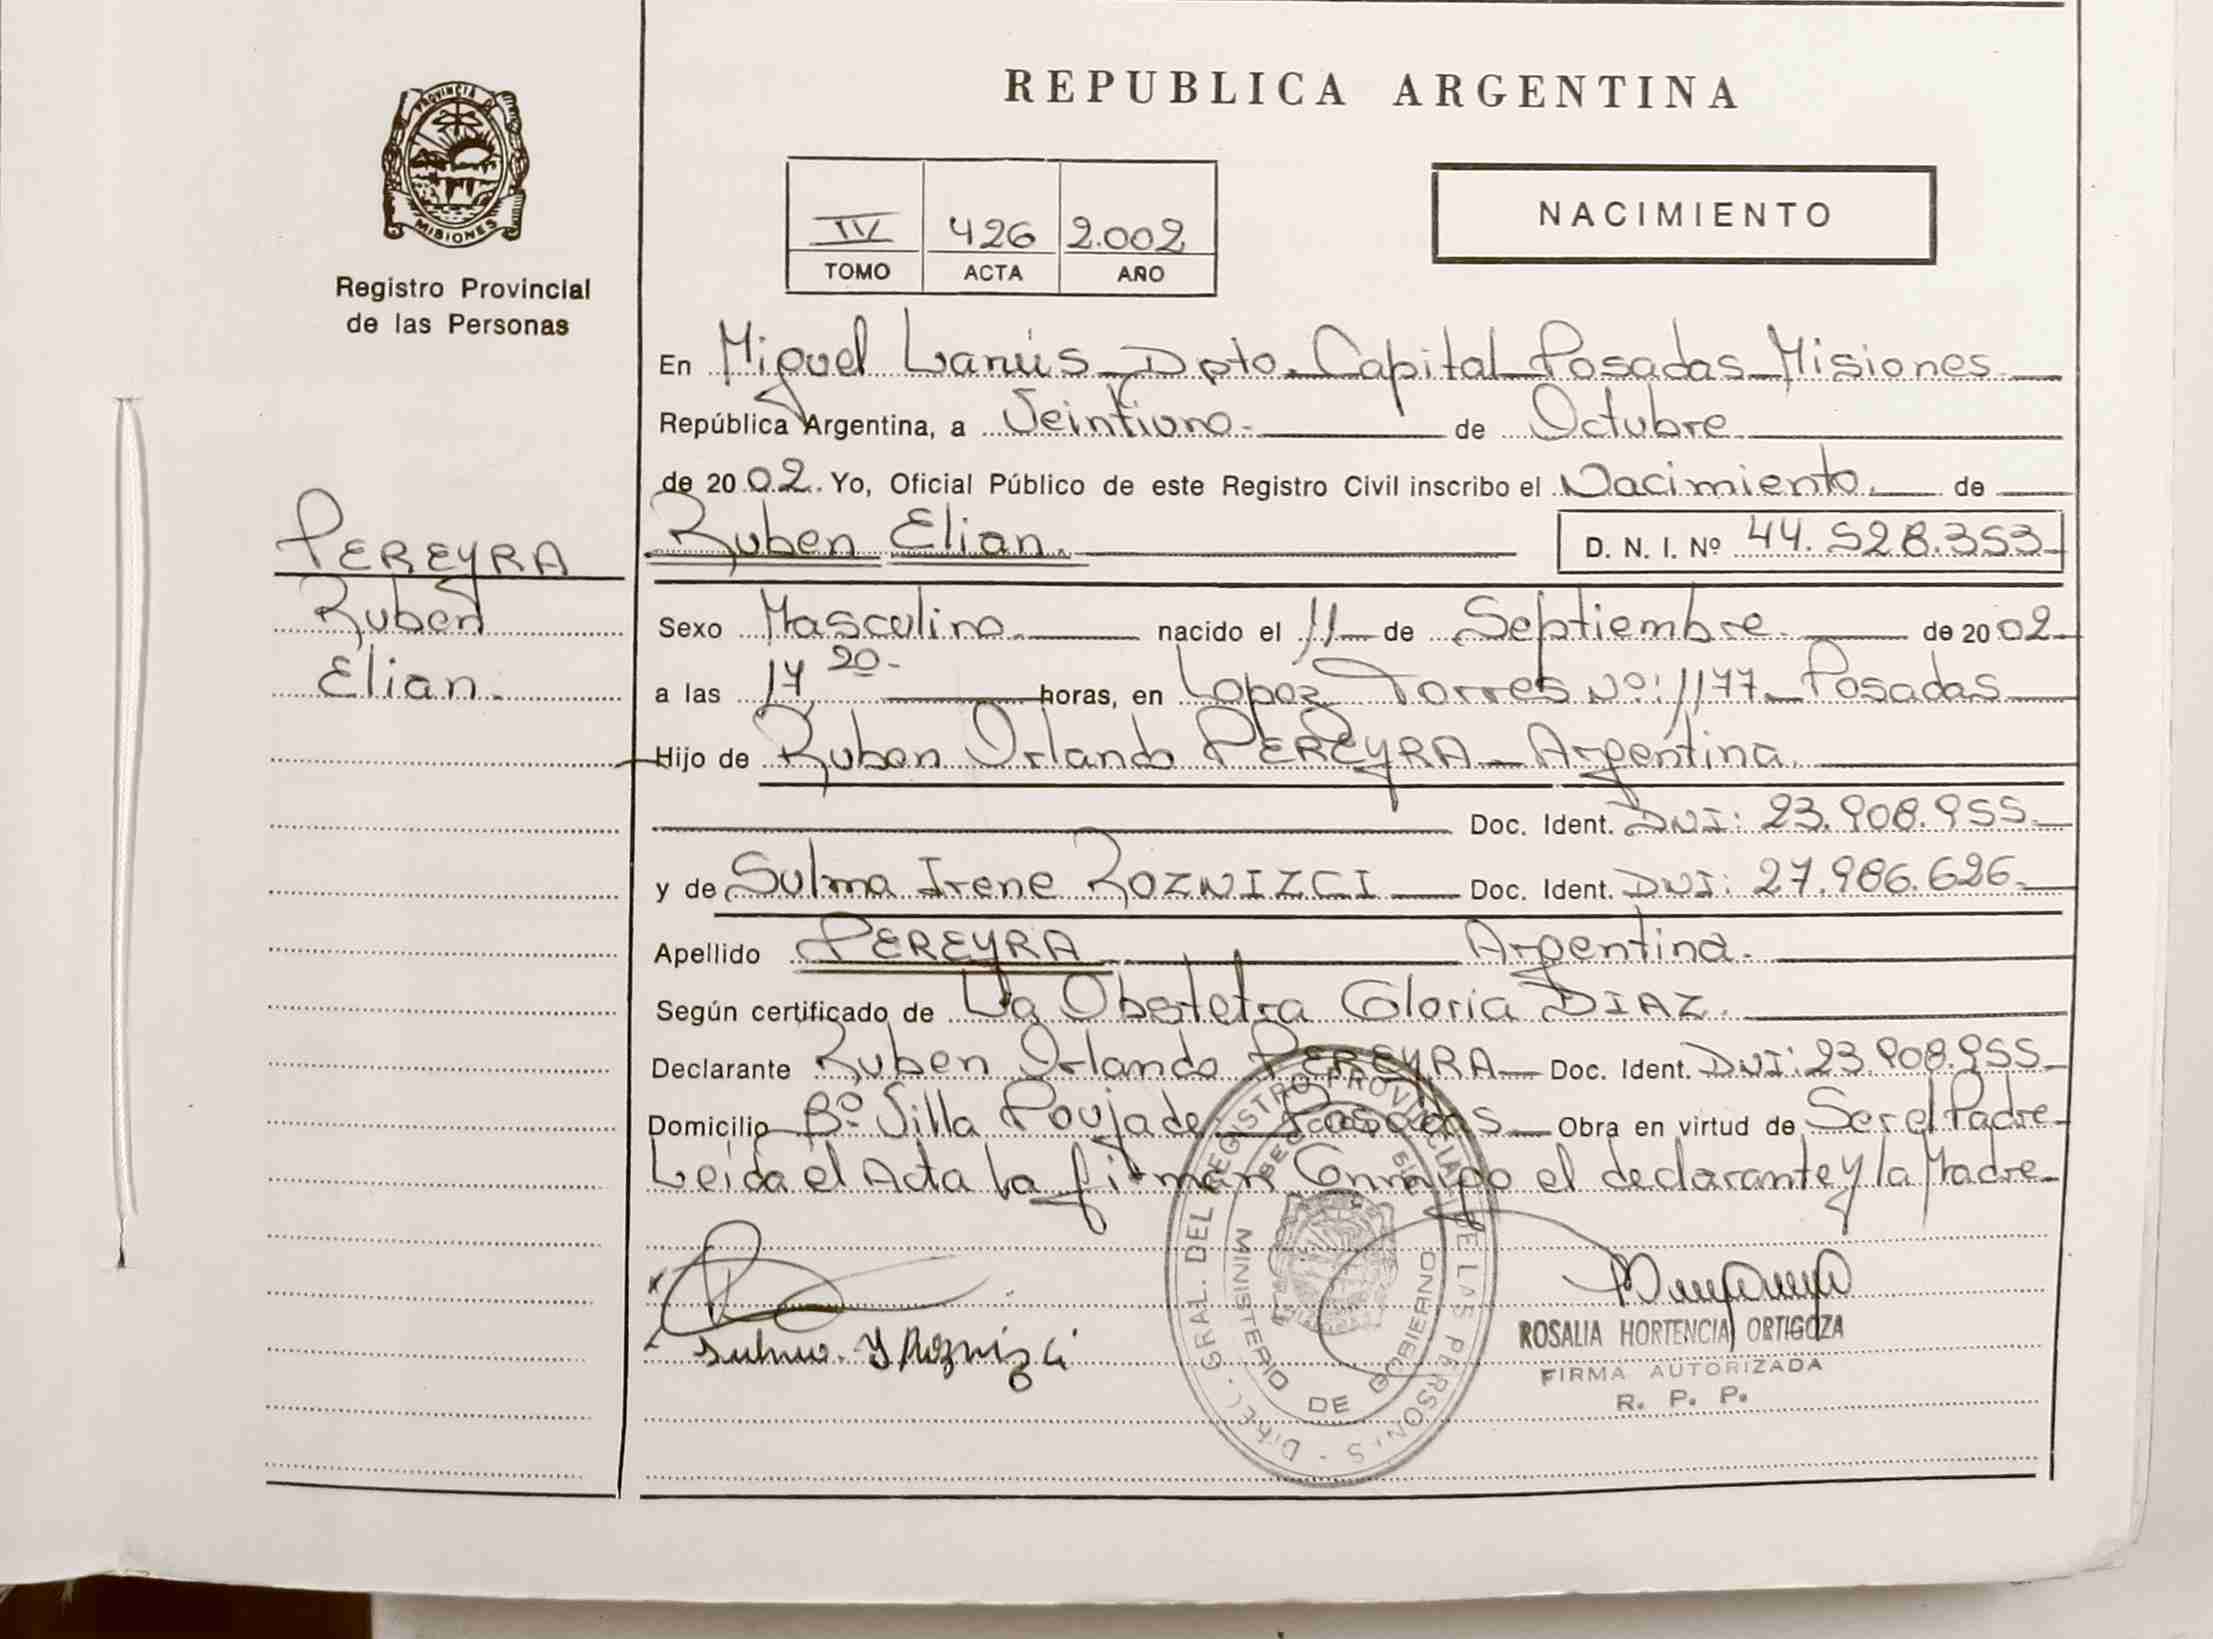 REPUBLICA ARGENTINA
PROVINCIA DE
MISIONES
Registro Provincial
de las Personas
IV 426 2.002
TOMO ACTA AÑO
NACIMIENTO
En Miguel Lanús Dpto. Capital Posadas Misiones
República Argentina, a Veintiuno de Octubre
de 2002. Yo, Oficial Público de este Registro Civil inscribo el Nacimiento de
Ruben Elian. D. N. I. Nº 44.528.353
PEREYRA
Ruben
Elian.
Sexo Masculino. nacido el 11 de Septiembre. de 2002
a las 17 20 horas, en Lopez Torres Nº: 1177 Posadas
Hijo de Ruben Orlando PEREYRA - Argentina.
Doc. Ident. DNI: 23.908.955
y de Sulma Irene ROZNIZCI Doc. Ident. DNI: 27.986.626.
Apellido PEREYRA Argentina.
Según certificado de La Obstetra Gloria DIAZ.
Declarante Ruben Orlando PEREYRA Doc. Ident. DNI: 23.908.955
Domicilio Bº Villa Poujade Posadas Obra en virtud de Ser el Padre
Leida el Acta la firman Conmigo el declarante y la Madre
GRAL. DEL REGISTRO PROVINCIAL DE LAS PERSONAS
MINISTERIO DE GOBIERNO
ROSALIA HORTENCIA ORTIGOZA
FIRMA AUTORIZADA
R. P. P.